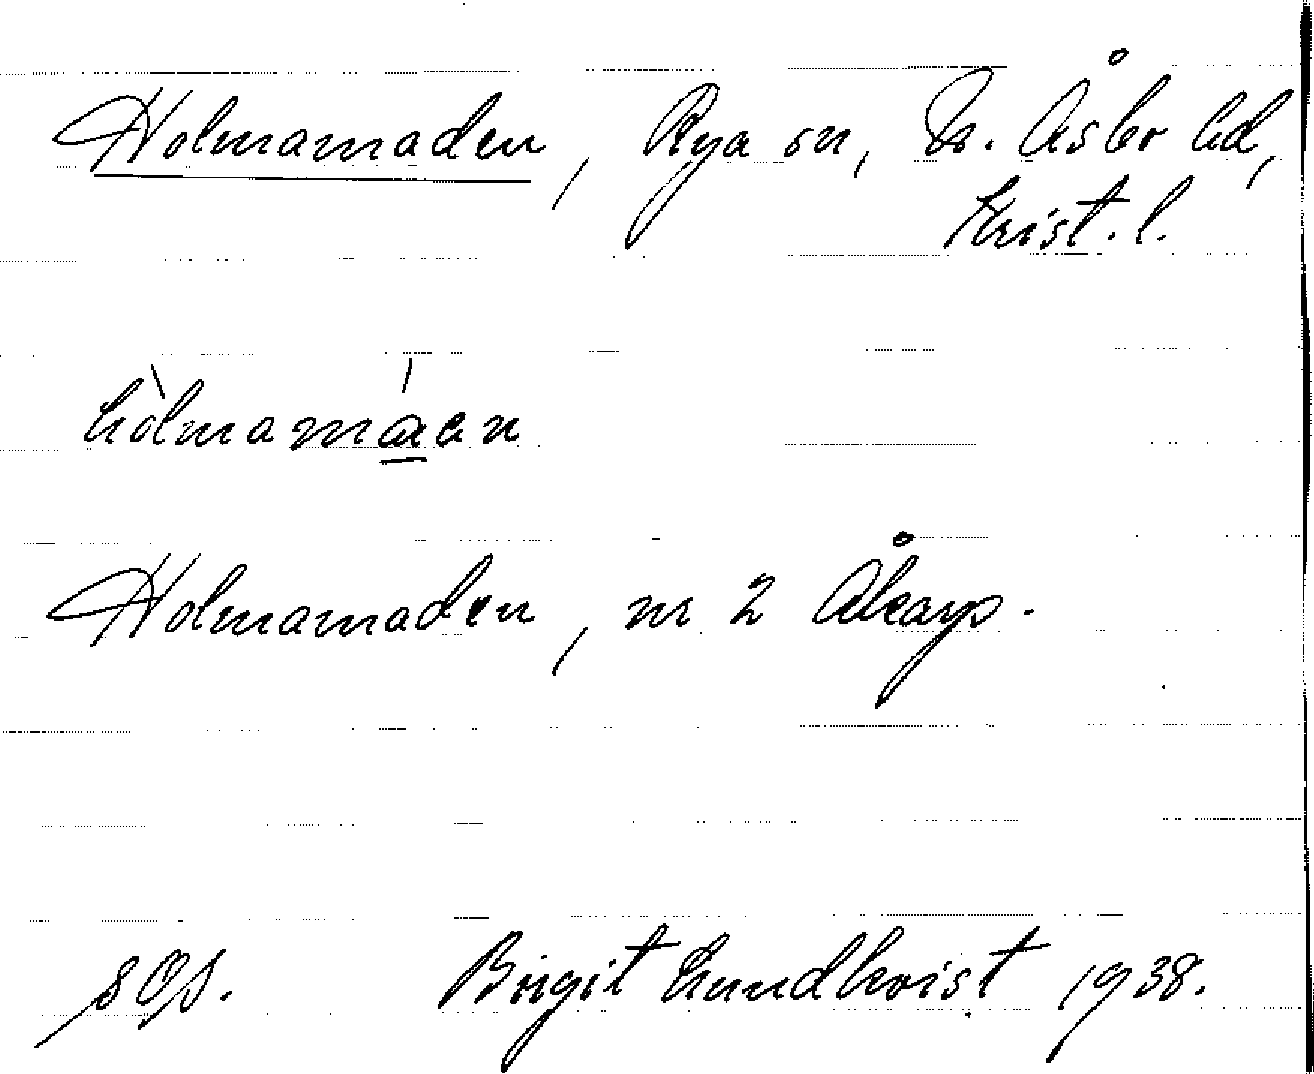 Holmamaden, Rya sn, N. Åsbo hd,
Krist. l.
hòlmamáen
Holmamaden, nr 2 Åkarp.
Birgit Lundkvist 1938.